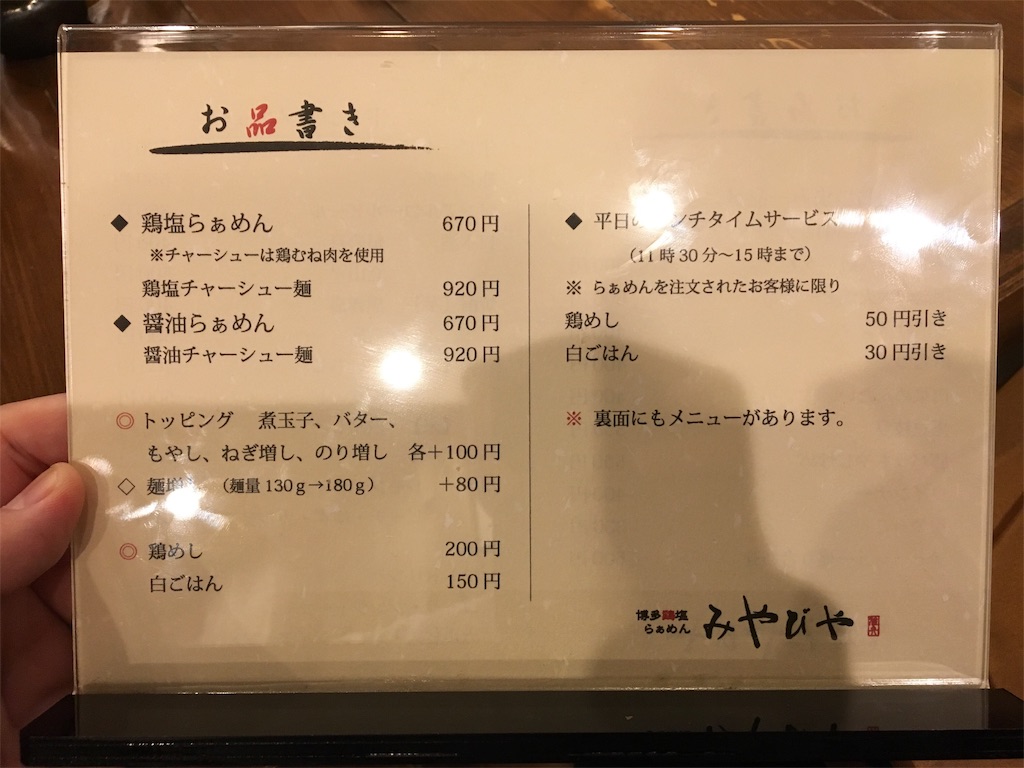 お品書き
◆ 鶏塩らぁめん 670円
※チャーシューは鶏むね肉を使用
鶏塩チャーシュー麺 920円
◆ 醤油らぁめん 670円
醤油チャーシュー麺 920円
◎トッピング 煮玉子、バター、
もやし、ねぎ増し、のり増し 各+100円
◇ 麺増し (麺量130g→180g) +80円
◎ 鶏めし 200円
白ごはん 150円
◆ 平日のランチタイムサービス
(11時30分~15時まで)
※ らぁめんを注文されたお客様に限り
鶏めし 50円引き
白ごはん 30円引き
※ 裏面にもメニューがあります。
博多鶏塩
らぁめん みやびや